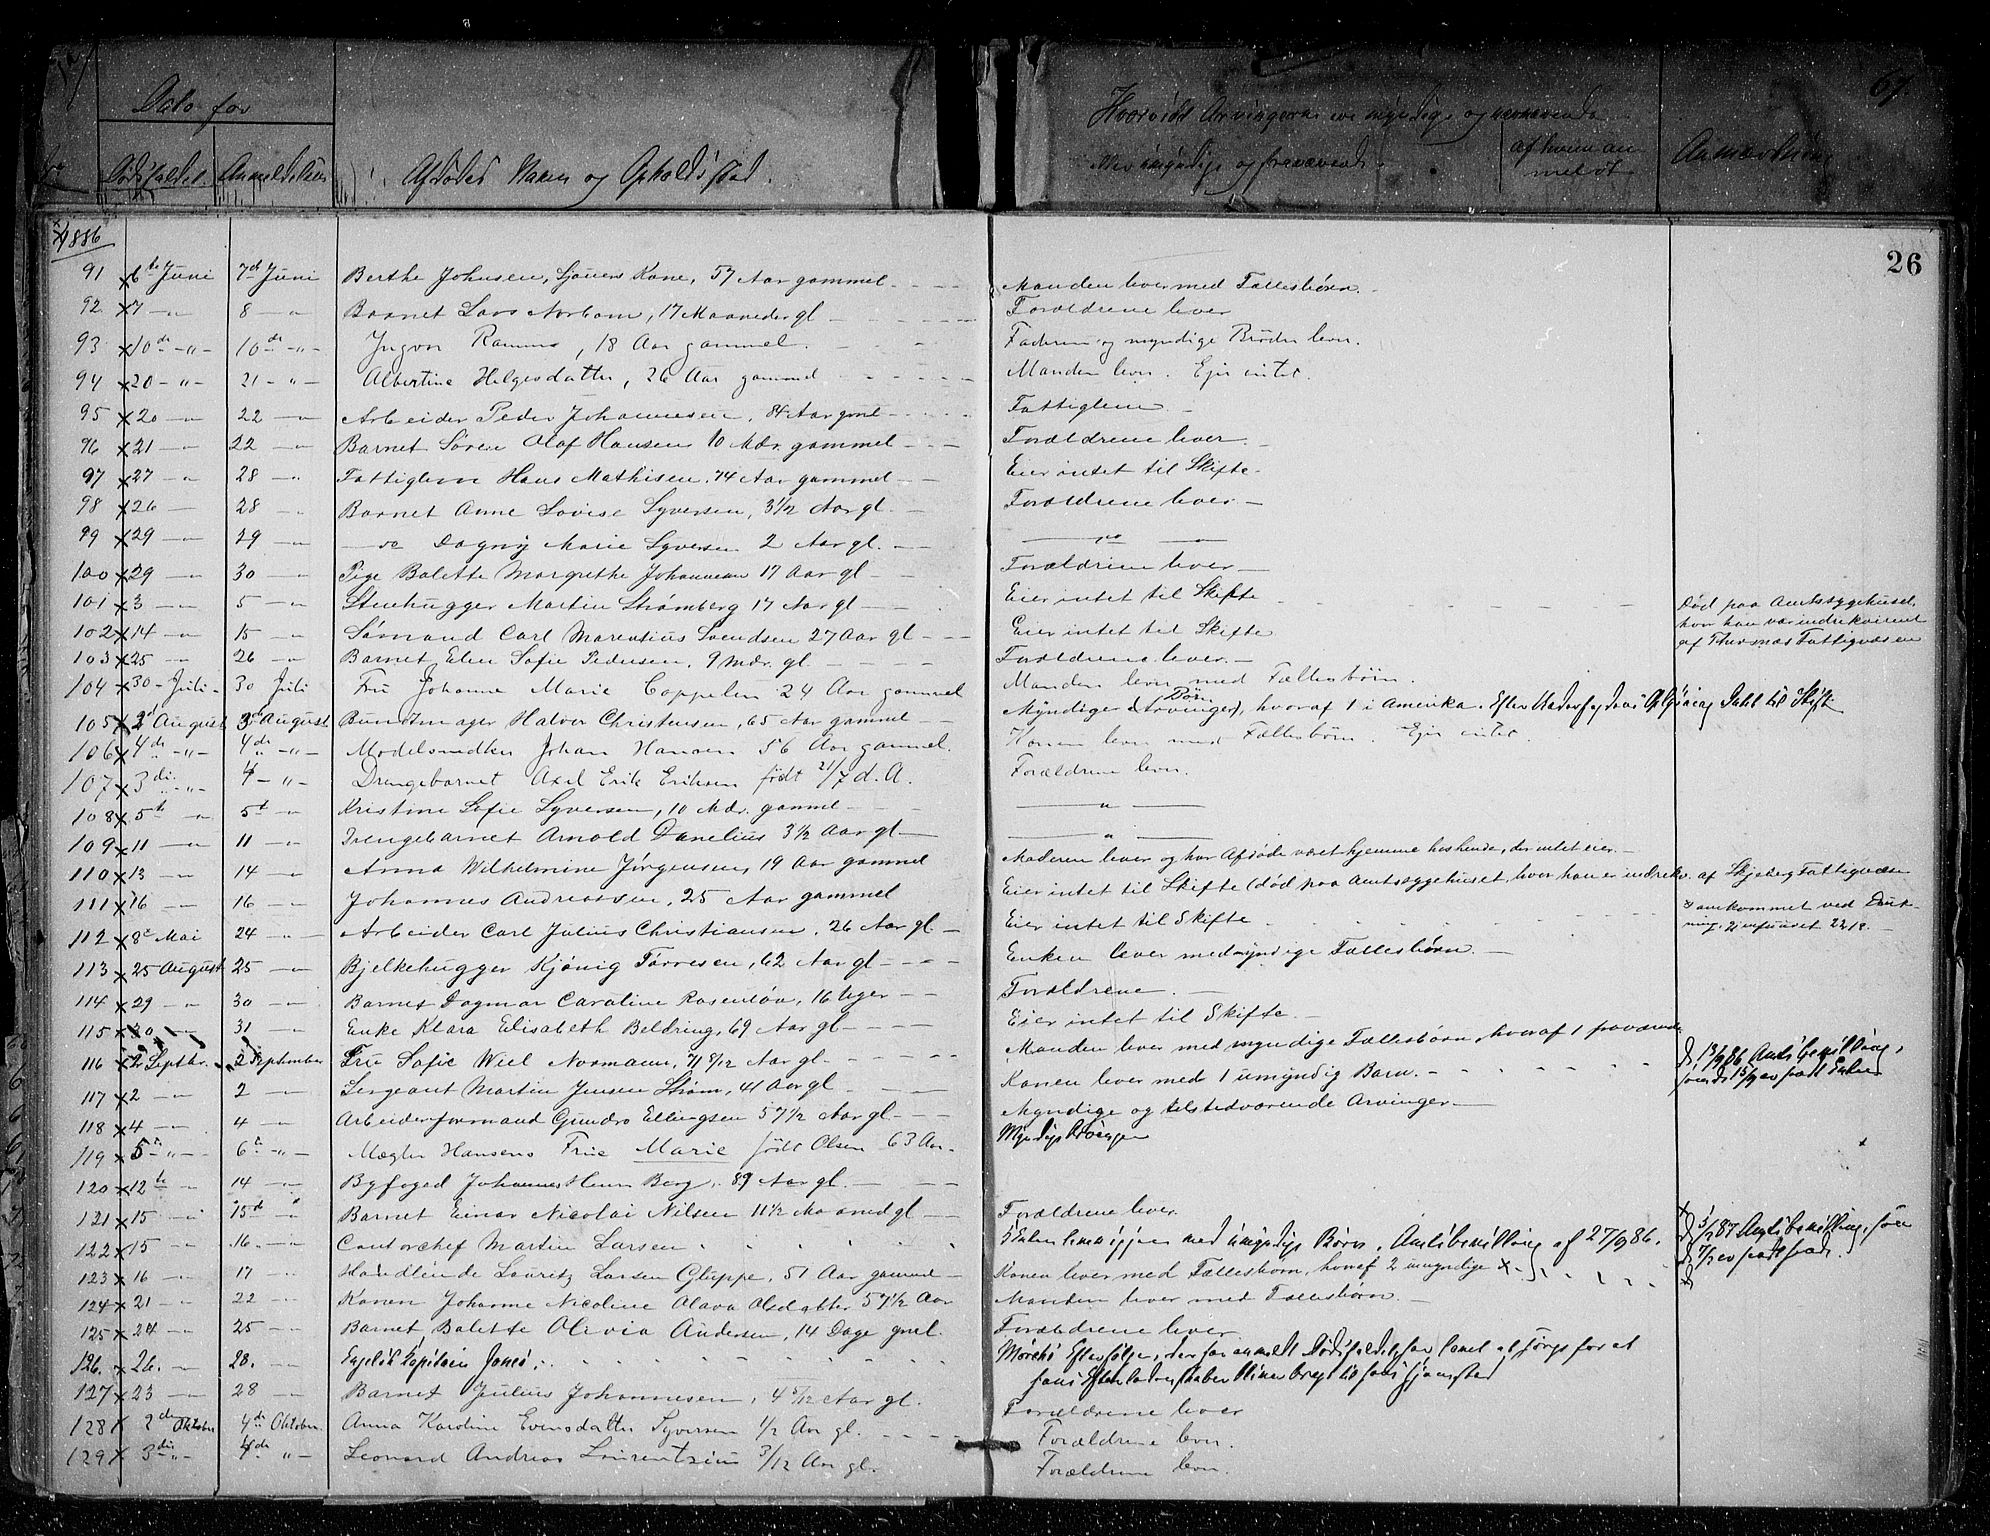 Dato for
Dødsfaldet. Anmeldelsen
Afdødes Navn og Opholdssted.
Hvorvidt Arvingerne ere myndige og nærværende
eller umyndige og fraværende.
af hvem an-
meldt
Anmærkning
69.
26
1886
91 x 6te Juni 7de Juni Berthe Johnsen, Kone, 57 Aar gammel Manden lever med Fællesbørn.
92 x 7 — " 8 — " Barnet Lars, 17 Maaneder gl Forældrene lever
93 x 10de — " — 10de — " — Ingvor, 18 Aar gammel. Faderen og myndige Brødre lever.
94 x 20 — " — 21 — " — Albertine Helgesdatter, 26 Aar gammel Manden lever. Ejer intet.
95 x 20 — " 22 — " Arbeider Peder Johannesen, 84 Aar gml Fattiglem
96 x 21 — " 22 — " Barnet Søren Olaf Hansen 10 Mdr. gammel Forældrene lever.
97 x 27 — " 28 — " Fattiglem Hans Mathisen, 74 Aar gammel Eier intet til Skifte
98 x 26 — 28 — " Barnet Anne Lovise Syversen, 3½ Aar gl. Forældrene lever
99 x 29 — " 29 — " — do Dagny Marie Syversen 2 Aar gl. — do —
100 x 29 — " 30 — " Pige Bolette Margrethe Johannesen 17 Aar gl Forældrene lever
101 x 3 — " 5 — " Stenhugger Martin Strømberg 17 Aar gl Eier intet til Skifte Død paa Amtssygehuset,
hvor han var indrekvireret
af Fattigvæsen
102 x 14 — " 15 — " Sømand Carl Marentius Svendsen 27 Aar gl Eier intet til Skifte
103 x 25 — " 26 — " Barnet Elen Sofie Pedersen, 9 Mdr. gl Forældrene lever.
104 x 30 – Juli – 30 Juli Fru Johanne Marie Cappelen 24 Aar gammel Manden lever med Fællesbørn.
105 x 2d August 3de August Bundtmager Halvor Christensen, 65 Aar gammel Myndige Arvinger (Børn), hvoraf 1 i Amerika.
106 x 4de — " — 4de — " — Modelsnedker Johan Hansen 56 Aar gammel. Konen lever med Fællesbørn. Ejer intet.
107 x 3die — " — 4 — " — Drengebarnet Axel Erik Eriksen født 21/7 d. A. Forældrene lever.
108 x 5te — " 5te — " Kristine Sofie Syversen, 10 Mdr. gammel — " —
109 x 11 — " 11 — " Drengebarnet Arnold Danelius 3½ Aar gl — " —
110 x 13 — " 14 — " Anna Wilhelmine Jørgensen, 19 Aar gammel Moderen lever og har Afdøde været hjemme hos hende, der intet eier.
111 x 16 — " 16 — " Johannes Andreassen, 25 Aar gammel Eier intet til Skifte (død paa Amtssygehuset, hvor han er indrekv. af Skjeberg Fattigvæsen
112 x 8de Mai 24 — " Arbeider Carl Julius Christiansen, 26 Aar gl Eier intet til Skifte omkommet ved Druk-
113 x 25 August 25 — " Bjelkehugger Kjønig Tørresen, 62 Aar gl Enken lever med myndige Fællesbørn.
114 x 29 — " 30 — " Barnet Dagmar Caroline Rosenløv, 16 Uger Forældrene.
115 x 30 — " 31 — " Enke Klara Elisabeth Beldring, 69 Aar gl Eier intet til Skifte.
116 x 2 Septbr. 2 September Fru Sofie Wiel Normann, 71 8/12 Aar gl Manden lever med myndige Fællesbørn, hvoraf 1 fraværende
117 x 2 — " 2 — " Sergeant Martin Jensen Strøm, 41 Aar gl Konen lever med 1 umyndig Barn. 13/9 86 Amtsbevilling,
118 x 4 — " 4 — " Arbeidsformand Gundro Ellingsen 57½ Aar gl Myndige og tilstedværende Arvinger
119 x 5te — " — 6te — " — Mægler Hansens Frue Marie født Olsen 63 Aar. Myndige
120 x 12te — 14 — " Byfoged Johannes Henri Borg, 89 Aar gl.
121 x 15 — " 15de " Barnet Einar Nicolai Nilsen 11½ Maaned gl Forældrene lever.
122 x 15 — " 16. — " Contorchef Martin Larsen med umyndige Børn. Amtsbevilling af 27/9 86. 5/1 87 Amtsbevilling,
123 x 16 — " 17 — " Handlende Lauritz Larsen Gluppe, 51 Aar gammel Konen lever med Fællesbørn, hvoraf 2 umyndige x
124 x 21 — " 22 — " Konen Johanne Nicoline Olava Olsdatter 57½ Aar Manden lever med Fællesbørn.
125 x 24 — " 25 — " Barnet Bolette Olivia Andersen, 14 Dage gml. Forældrene lever
126. x 26. — " 28. — " Engelsk Kapitain Jones.
127 x 23 — " 28 — " Barnet Julius Johannesen, 4 5/12 Aar gl. Forældrene lever
128 x 2den Oktober 4de Oktober. Anna Karoline Evensdatter Syversen ½ Aar gl. Forældrene lever.
129 x 3die — " — 4de — " — Leonard Andreas Laurentzius 3/12 Aar gl. Forældrene lever.